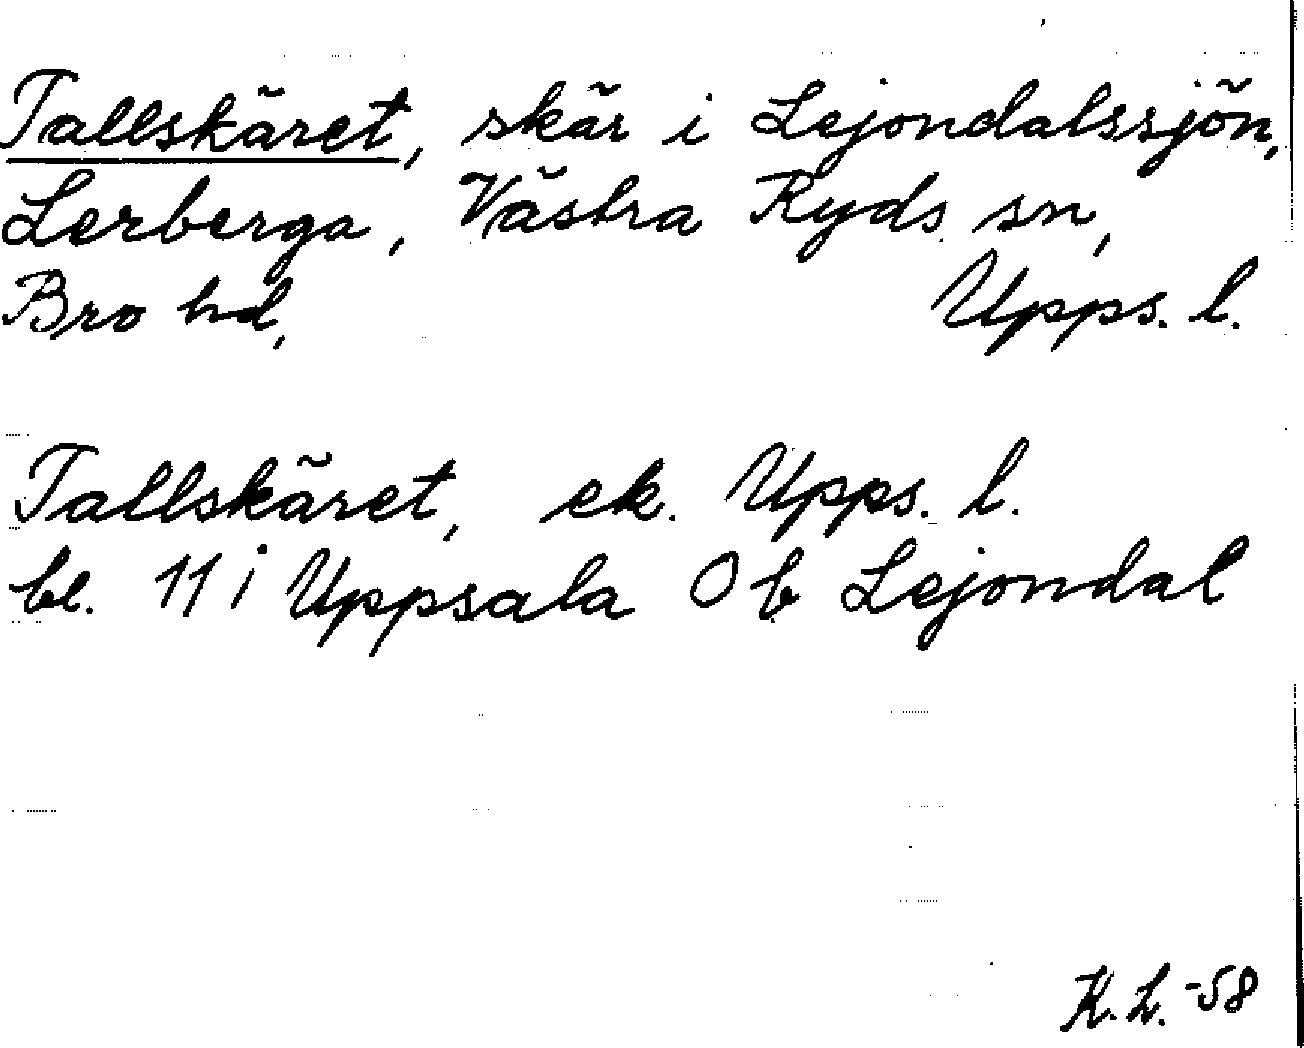 Tallskäret, skär i Lejondalssjön,
Lerberga, Västra Ryds sn,
Bro hd, Upps. l.
Tallskäret, ek. Upps. l.
bl. 11 i Uppsala O b Lejondal
K.L. -58